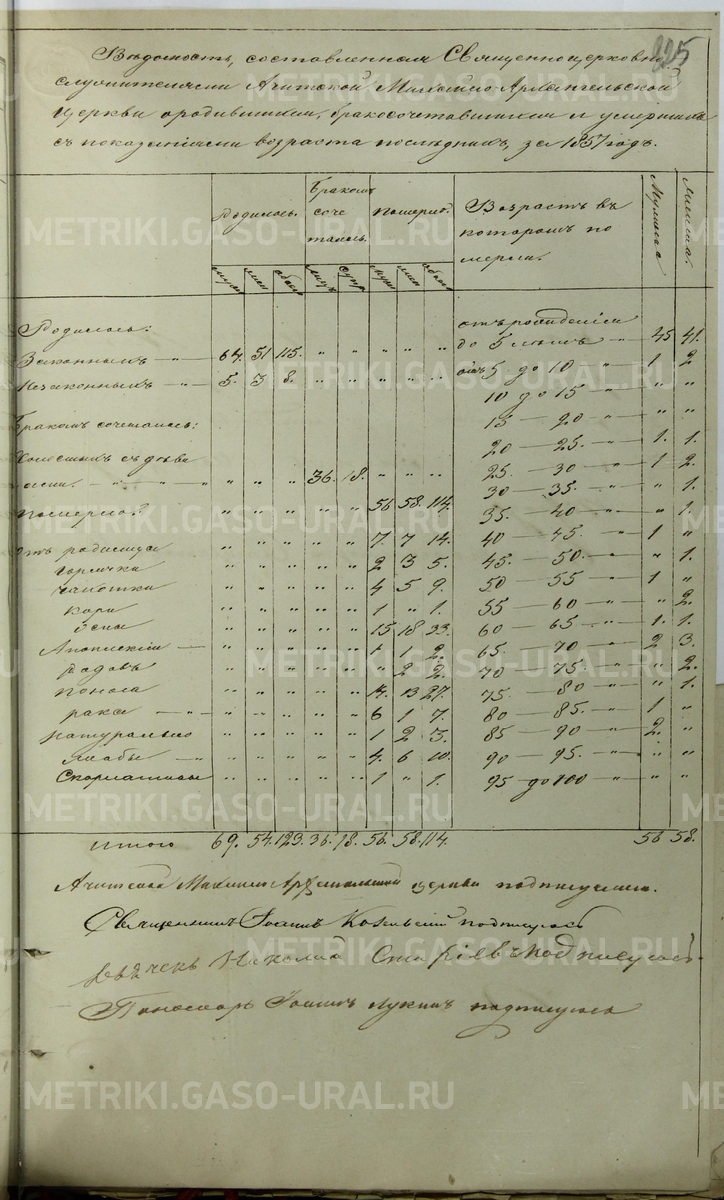 225
Вѣдомость, составленная Священноцерковно
служителями Ачитской Михайло Архангельской
церкви о родившихся, бракосочетавшихся и умершихъ
съ показаніемъ возраста послѣднихъ, за 1857 годъ.
Родилось. Бракомъ соче талось. Померло. Возрастъ въ которомъ по мерли. Мужеска Женска.
муж жен обоего муж супр муж жен обоего
Родилось:
Законныхъ — " — 64. 51 115. " " " " "
Незаконныхъ — " — 5. 3 8. " " " " "
Бракомъ сочеталось:
Холостыхъ съ дѣви
цами. — " — " — " " " " 36. 18. " " "
Померло " " " " " 56 58. 114.
Отъ родимца " " " " " 7. 7 14.
горячки " " " " " 2 3 5.
чахотки " " " " " 4 5 9.
кори " " " " " 1 " 1.
оспы " " " " " 15 18 33.
Апоплексіи — " " " " " 1 1 2.
родовъ " " " " " " 2 2.
поноса " " " " " 14. 13 27.
рака — " — " " " " " 6 1 7.
натурально " " " " " 1 2 3.
жабы — " " " " " " 4. 6 10.
Скарлатины " " " " " 1 " 1.
отъ рожденія
до 5 лѣтъ " 45 41.
отъ 5 до 10 " 1 2
10 до 15 — " " "
15 — 20 — " " "
20 — 25. — " 1. 1.
25. — 30 — " 1 2.
30 — 35. — " " 1.
35. — 40 — " " 1.
40 — 45. — " 1 "
45. — 50. — " " 1.
50 — 55 — " 1 "
55 — 60 — " " 2.
60 — 65 — " 1. 1.
65. — 70 — " 2 3.
70 — 75. — " " 2.
75. — 80 — " " 1.
80 — 85. — " 1 "
85 — 90 — " 2. "
90 — 95. — " " "
95 до 100 — " " "
Итого 69. 54. 123. 36. 18. 56. 58. 114. 56 58.
Ачитской Михайло Архангельской церкви подписуемся.
Священникъ Іоаннъ подписуюсь
Николай подписуюсь.
Пономарь Іоаннъ Лукинъ подписуюсь
METRIKI.GASO-URAL.RU